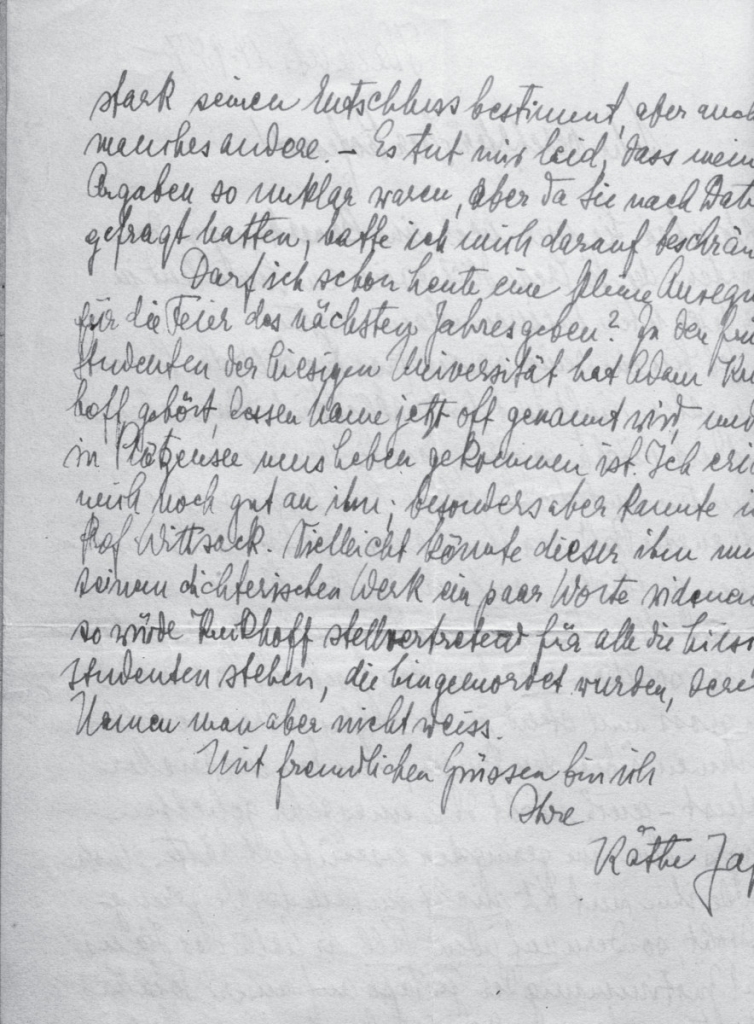 stark seinen Entschluss bestimmt, aber auch
manches andere. – Es tut mir leid, dass mein
Angaben so unklar waren, aber da Sie nach Dat
gefragt hatten, hatte ich mich darauf beschrän
Darf ich schon heute eine kleine Anregu
für die Feier des nächsten Jahres geben? In den frü
Studenten der hiesigen Universität hat Adam Ku
hoff gehört, dessen Name jetzt oft genannt wird, und
in Plötzensee ums Leben gekommen ist. Ich eri
mich noch gut an ihn; besonders aber kannte i
Prof. Wittsack. Vielleicht könnte dieser ihm un
seinem dichterischen Werk ein paar Worte widmen
so würde Kuckhoff stellvertretend für alle die hies
Studenten stehen, die hingemordet wurden, dere
Namen man aber nicht weiss.
Mit freundlichen Grüssen bin ich
Ihre
Käthe